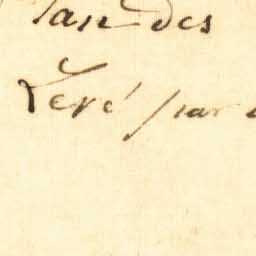 lan des
Levé par